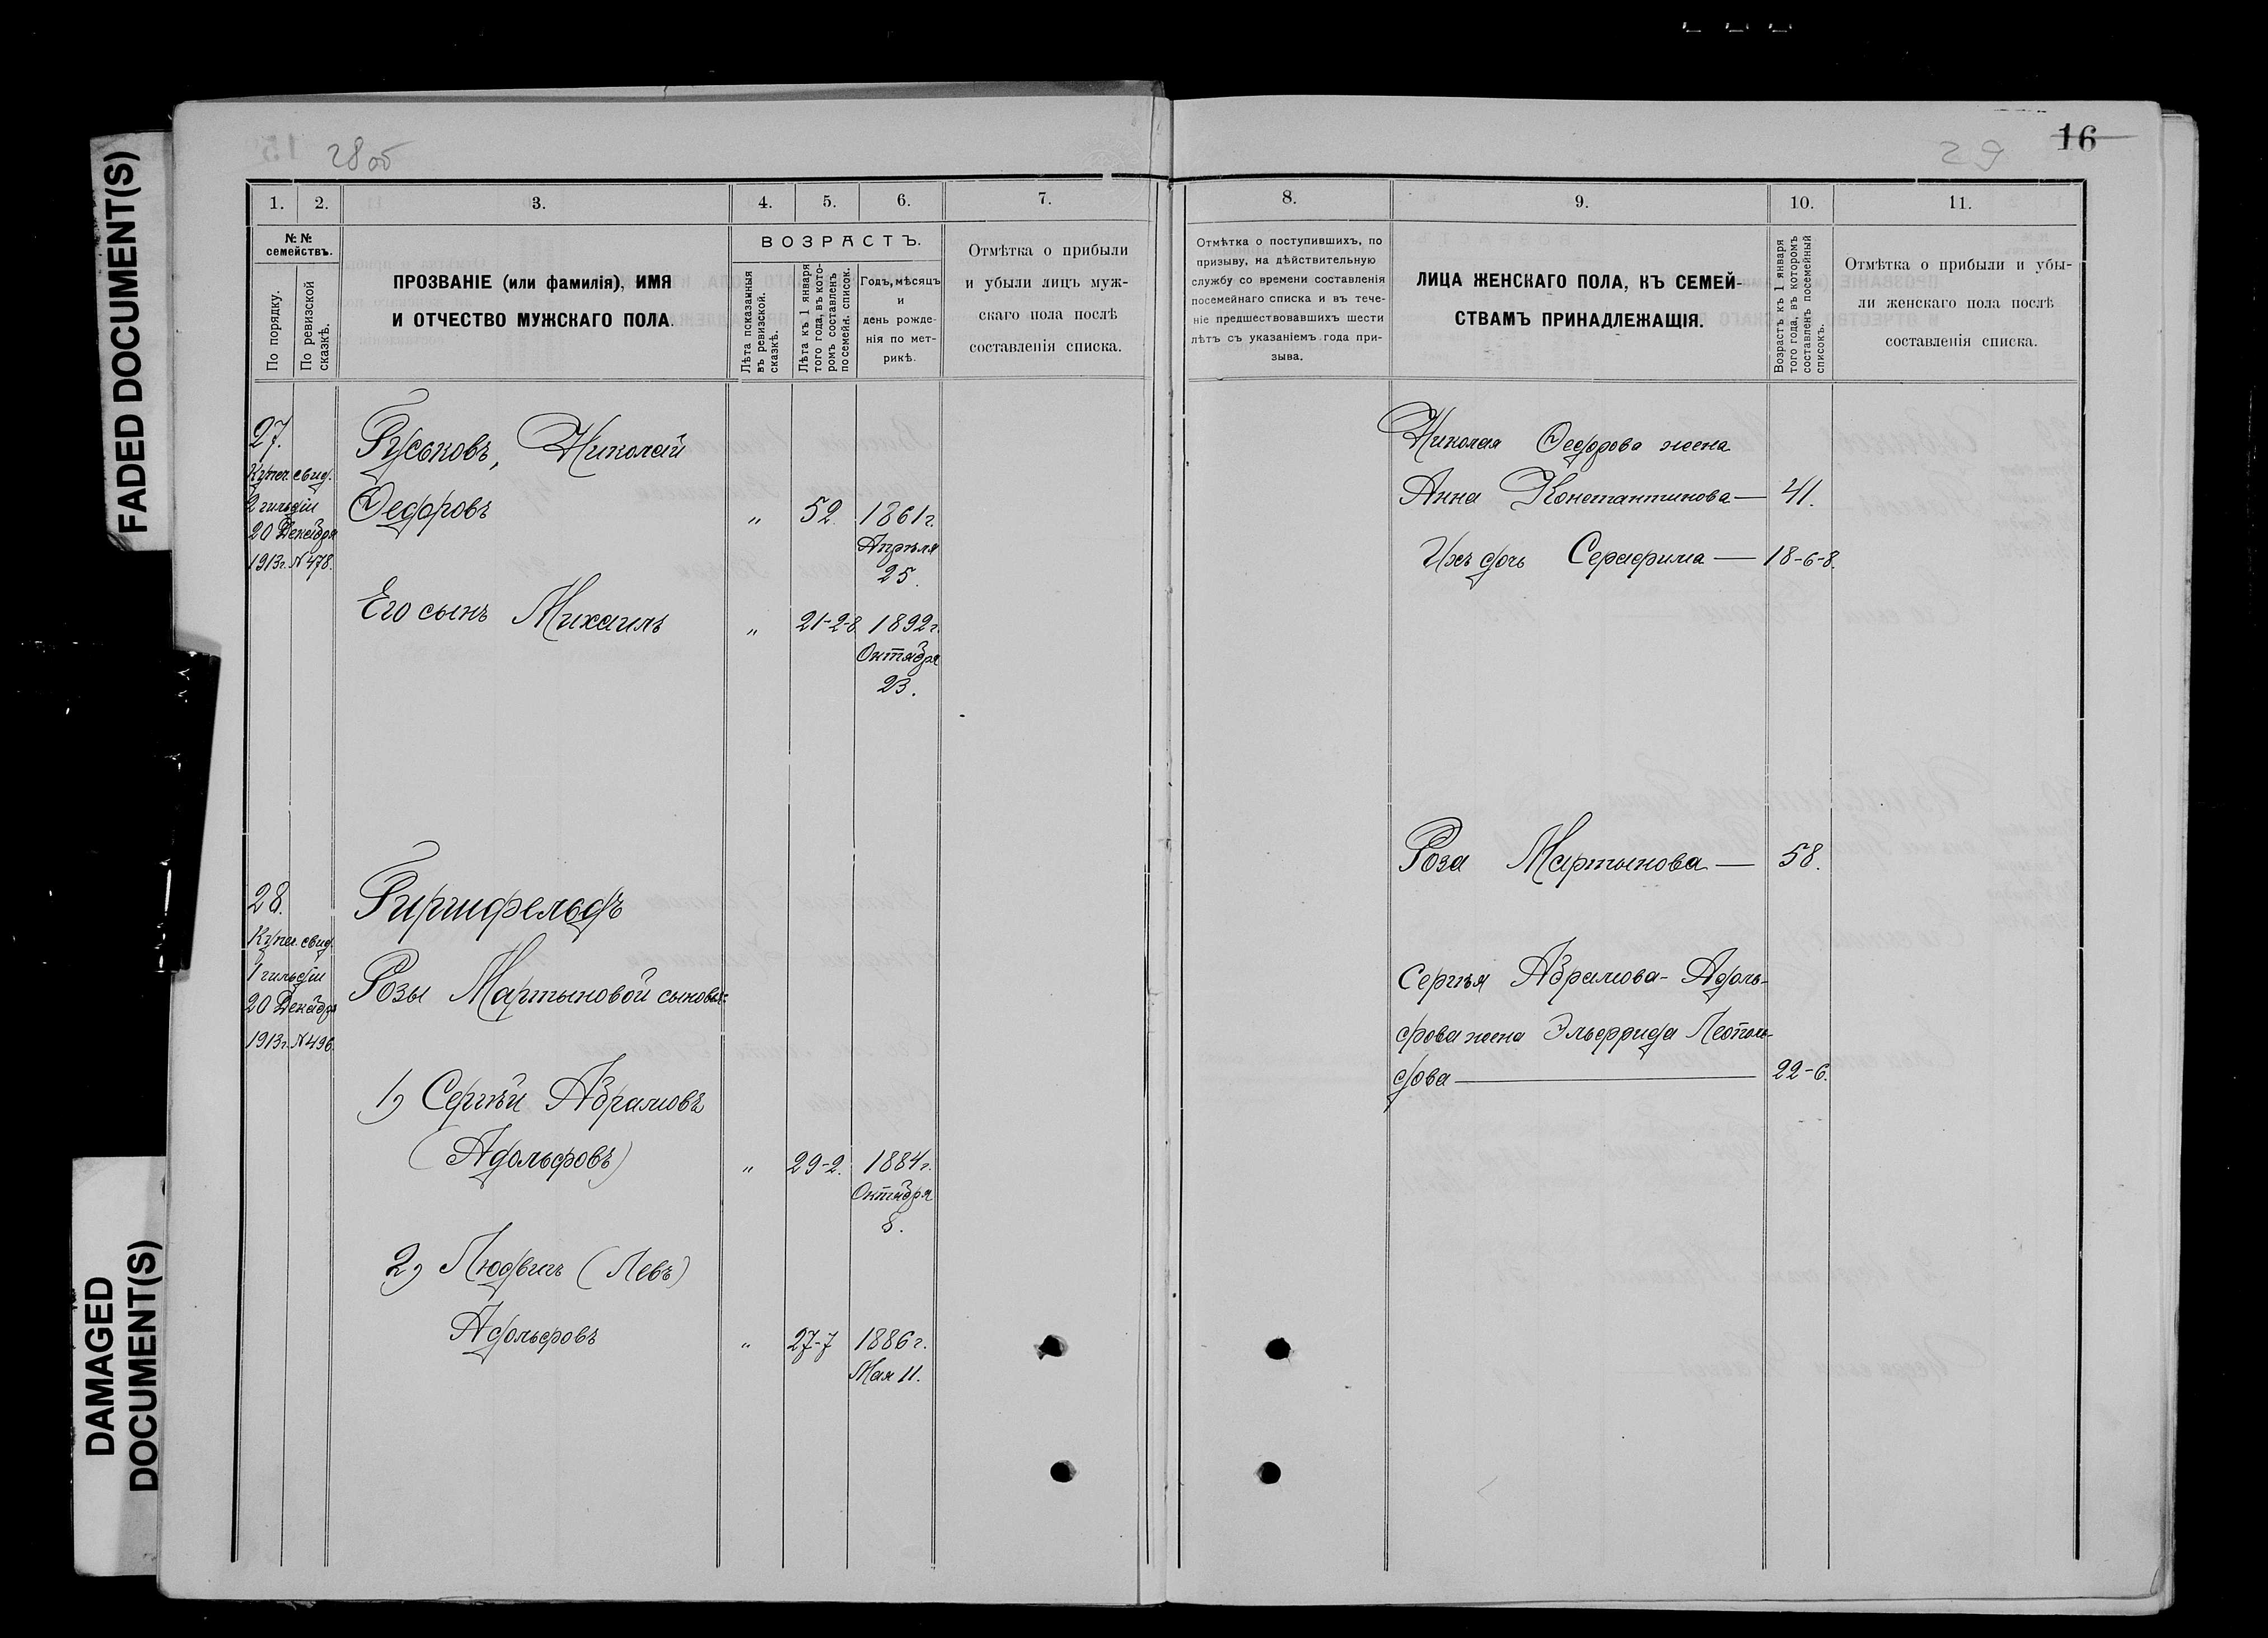 FADED DOCUMENT(S)
DAMAGED
DOCUMENT(S)
28об
16
29
1.
2.
3.
4.
5.
6.
7.
№ №
семействъ.
По порядку.
По ревизской
сказкѣ.
ПРОЗВАНІЕ (или фамилія), ИМЯ
И ОТЧЕСТВО МУЖСКАГО ПОЛА.
ВОЗРАСТЪ.
Лѣта показанныя
въ ревизской.
сказкѣ.
Лѣта къ 1 января
того года, въ кото-
ромъ составленъ
посемейн. список.
Годъ, мѣсяцъ
и
день рожде-
нія по мет-
рикѣ.
Отмѣтка о прибыли
и убыли лицъ муж-
скаго пола послѣ
составленія списка.
27.
Купеч. свид.
2 гильдіи
20 Декабря
1913г. №478.
Гуськовъ, Николай
Ѳедоровъ
„ 52. 1861г.
Апрѣля
25.
Его сынъ Михаилъ
„ 21-2-8 1892г.
Октября
23.
28.
Купеч. свид.
1 гильдіи
20 Декабря
1913г. №496.
Гиршфельдъ
Розы Мартыновой сыновья:
1) Сергѣй Абрамовъ
(Адольфовъ)
„ 29-2. 1884г.
Октября
8.
2) Людвигъ (Левъ)
Адольфовъ
„ 27-7 1886г.
Мая 11.
8.
9.
10.
11.
Отмѣтка о поступившихъ, по
призыву, на дѣйствительную
службу со времени составленія
посемейнаго списка и въ тече-
ніе предшествовавшихъ шести
лѣтъ съ указаніемъ года при-
зыва.
ЛИЦА ЖЕНСКАГО ПОЛА, КЪ СЕМЕЙ-
СТВАМЪ ПРИНАДЛЕЖАЩІЯ.
Возрастъ къ 1 января
того года, въ которомъ
составленъ посемейный
списокъ.
Отмѣтка о прибыли и убы-
ли женскаго пола послѣ
составленія списка.
Николая Ѳедорова жена
Анна Константинова — 41.
Ихъ дочь Серафима — 18-6-8.
Роза Мартынова — 58.
Сергѣя Абрамова-Адоль-
фова жена Эльфрида Леополь-
дова — 22-6.